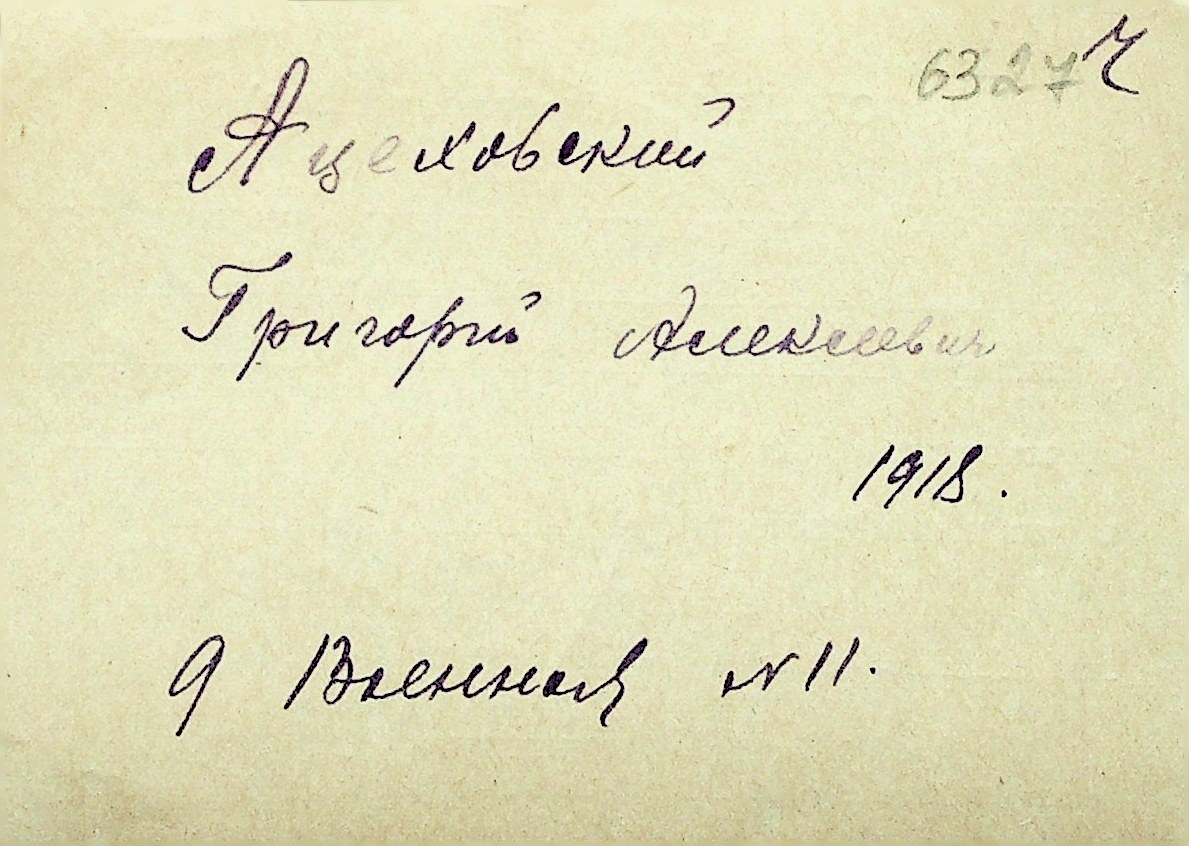 6327 ч
Ацеховский
Григорий Алексеевич
1918.
9 Военная № 11.